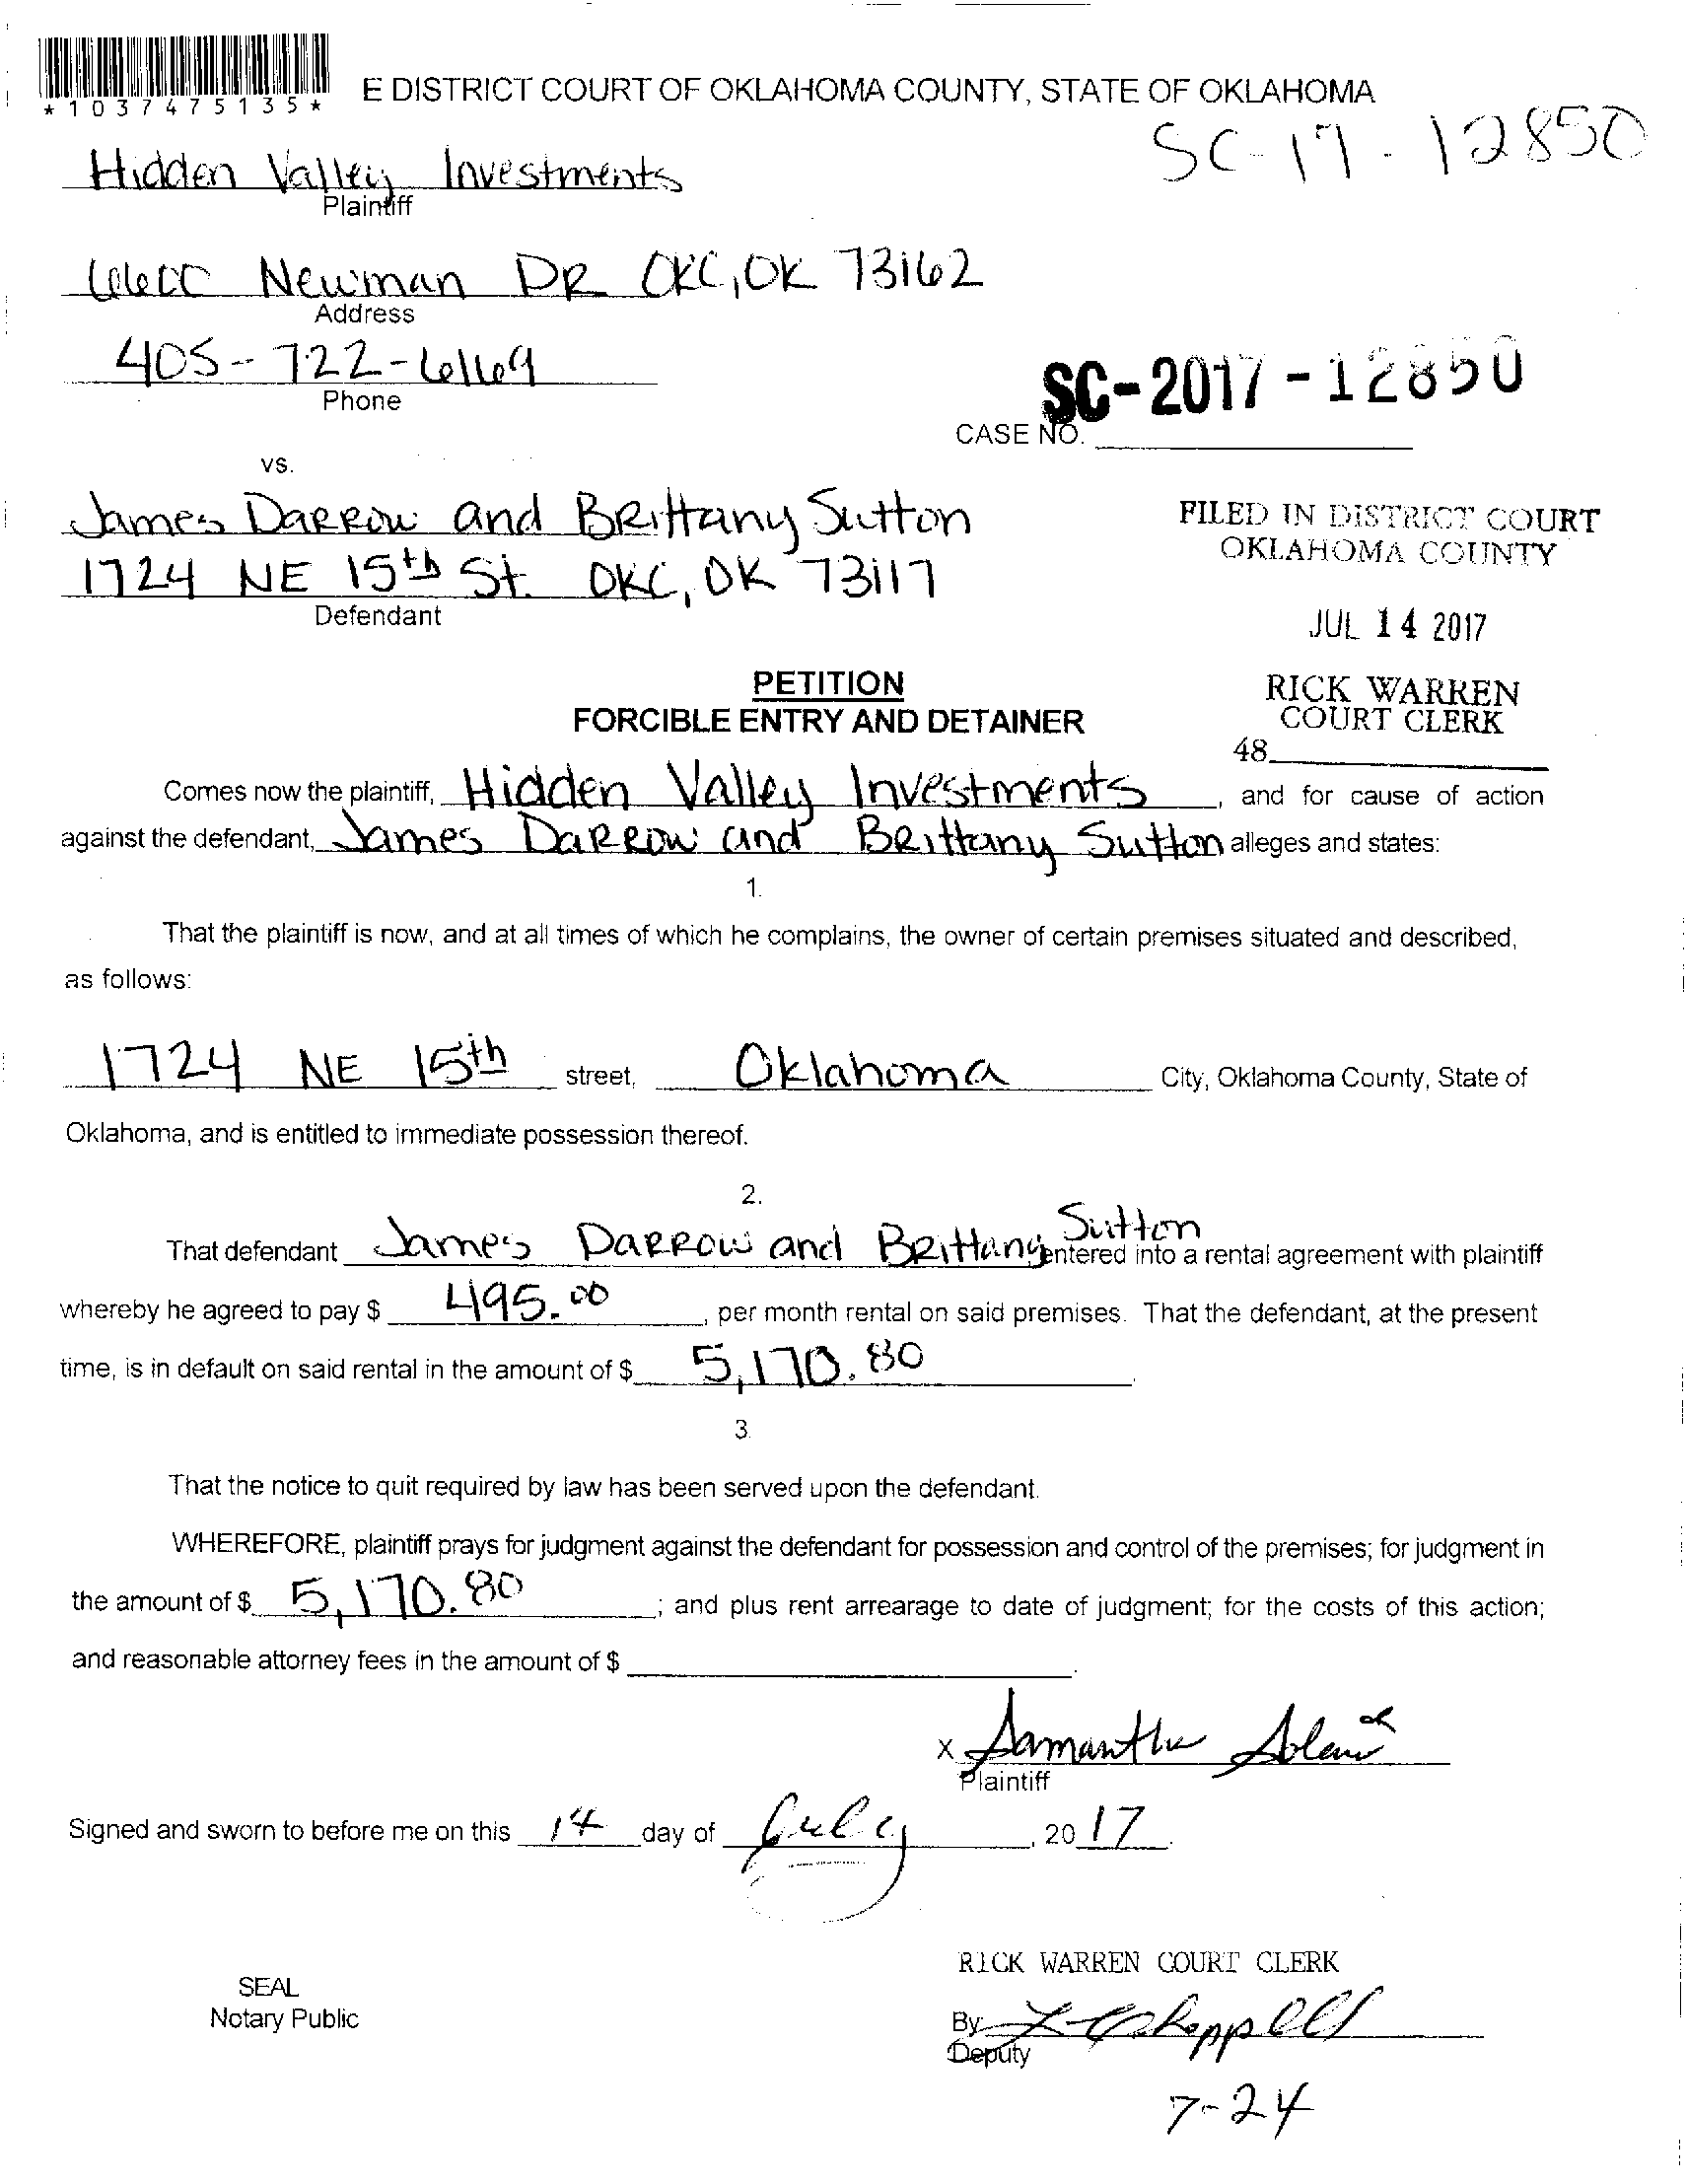 *1037475135*
E DISTRICT COURT OF OKLAHOMA COUNTY, STATE OF OKLAHOMA
SC-17-12850
Hidden Valley Investments
Plaintiff
Newman DR OKC, OK 73162
Address
405-722-6169
Phone
SC-2017-12850
CASE NO.
vs.
James Darrow and Brittany Sutton
1724 NE 15th St. OKC, OK 73117
Defendant
FILED IN DISTRICT COURT
OKLAHOMA COUNTY
JUL 14 2017
RICK WARREN
COURT CLERK
48
PETITION
FORCIBLE ENTRY AND DETAINER
Comes now the plaintiff, Hidden Valley Investments, and for cause of action
against the defendant, James Darrow and Brittany Sutton alleges and states:
1.
That the plaintiff is now, and at all times of which he complains, the owner of certain premises situated and described,
as follows:
1724 NE 15th street, Oklahoma City, Oklahoma County, State of
Oklahoma, and is entitled to immediate possession thereof.
2.
That defendant James Darrow and Brittany Sutton entered into a rental agreement with plaintiff
whereby he agreed to pay $ 495.00, per month rental on said premises. That the defendant, at the present
time, is in default on said rental in the amount of $ 5,170.80.
3.
That the notice to quit required by law has been served upon the defendant.
WHEREFORE, plaintiff prays for judgment against the defendant for possession and control of the premises; for judgment in
the amount of $ 5,170.80; and plus rent arrearage to date of judgment; for the costs of this action;
and reasonable attorney fees in the amount of $
x Samantha
Plaintiff
Signed and sworn to before me on this 14 day of July, 2017.
RICK WARREN COURT CLERK
SEAL
Notary Public
By
Deputy
7-24